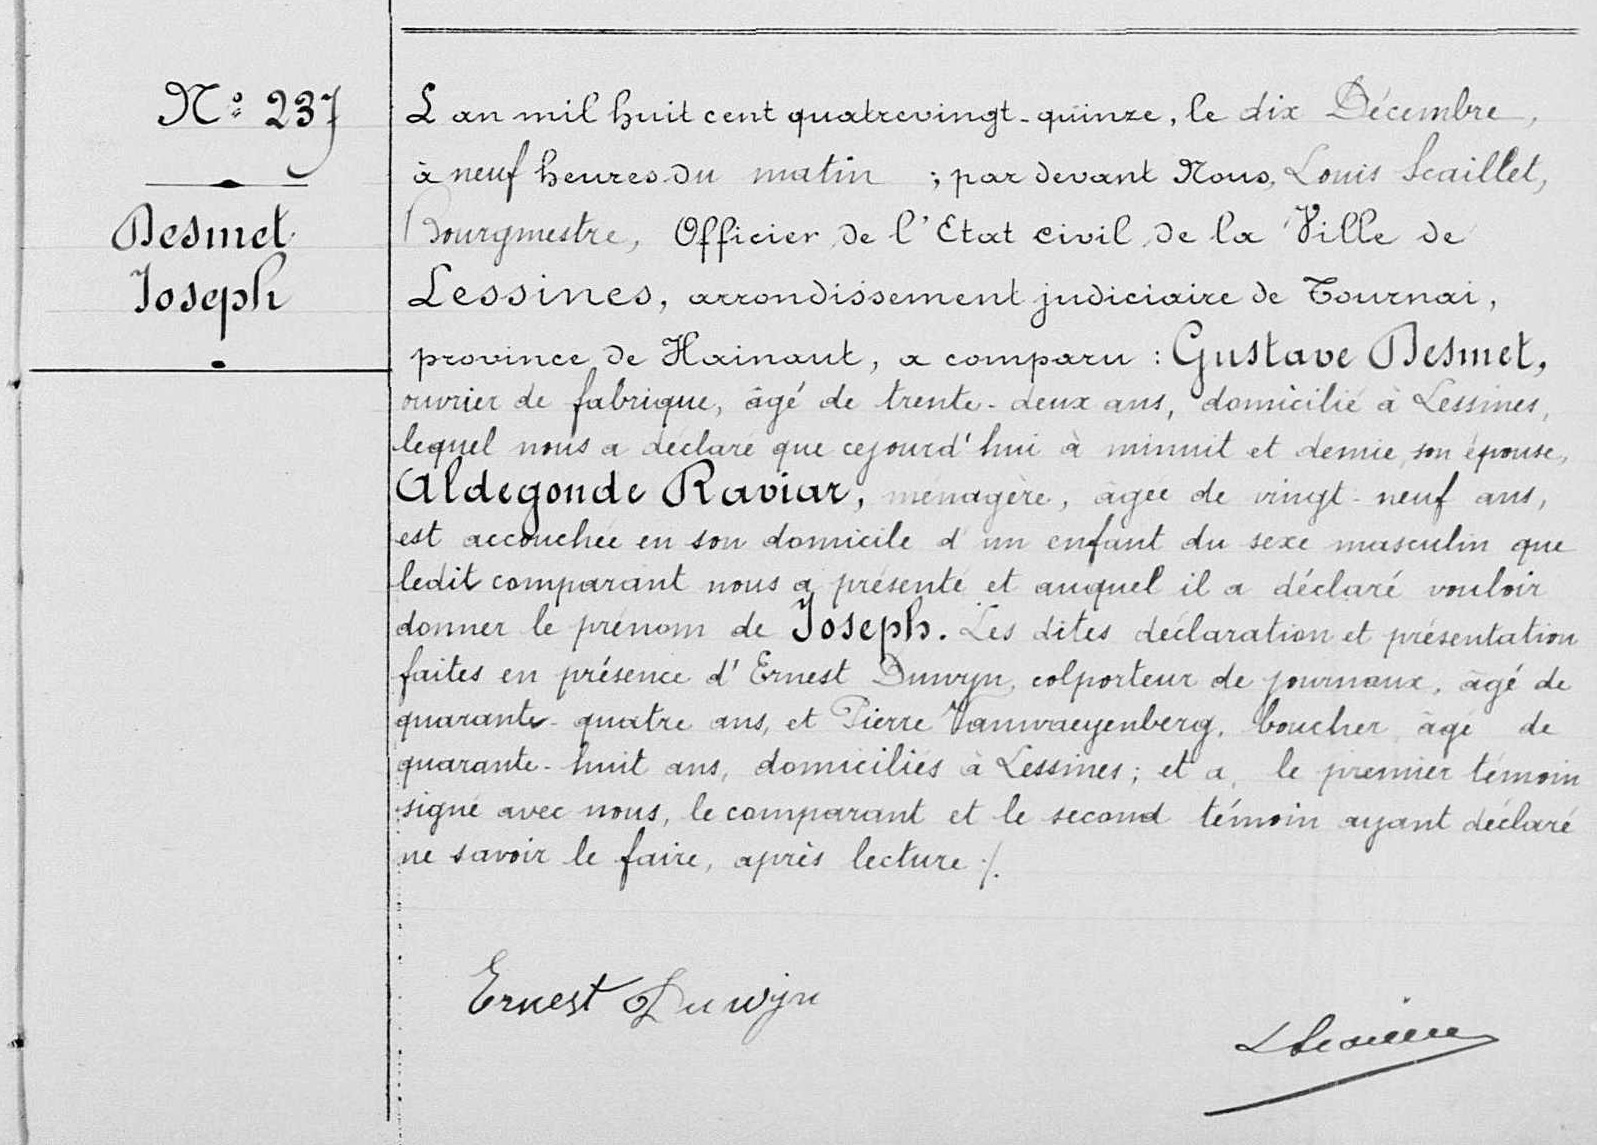 N° 237
Desmet
Joseph
L an mil huit cent quatrevingt-quinze, le dix Décembre,
à neuf heures du matin ; par devant Nous, Louis Scaillet,
Bourgmestre, Officier de l'Etat civil de la Ville de
Lessines, arrondissement judiciaire de Tournai,
province de Hainaut, a comparu : Gustave Desmet,
ouvrier de fabrique, âgé de trente-deux ans, domicilié à Lessines,
lequel nous a déclaré que cejourd'hui à minuit et demie, son épouse,
Aldegonde Raviar, ménagère, âgée de vingt-neuf ans,
est accouchée en son domicile d'un enfant du sexe masculin que
ledit comparant nous a présenté et auquel il a déclaré vouloir
donner le prénom de Joseph. Les dites déclaration et présentation
faites en présence d'Ernest Duwyn, colporteur de journaux, âgé de
quarante-quatre ans, et Pierre Vanwaeyenberg, boucher, âgé de
quarante-huit ans, domiciliés à Lessines ; et a, le premier témoin
signé avec nous, le comparant et le second témoin ayant déclaré
ne savoir le faire, après lecture ./.
Ernest Duwyn